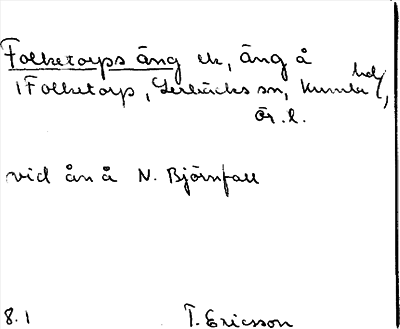 Folketorps äng ek, äng å
1 Folketorp, Lerbäcks sn, Kumla hd,
Ör. l.
vid ån å N. Björnfall
8.1 T. Ericsson